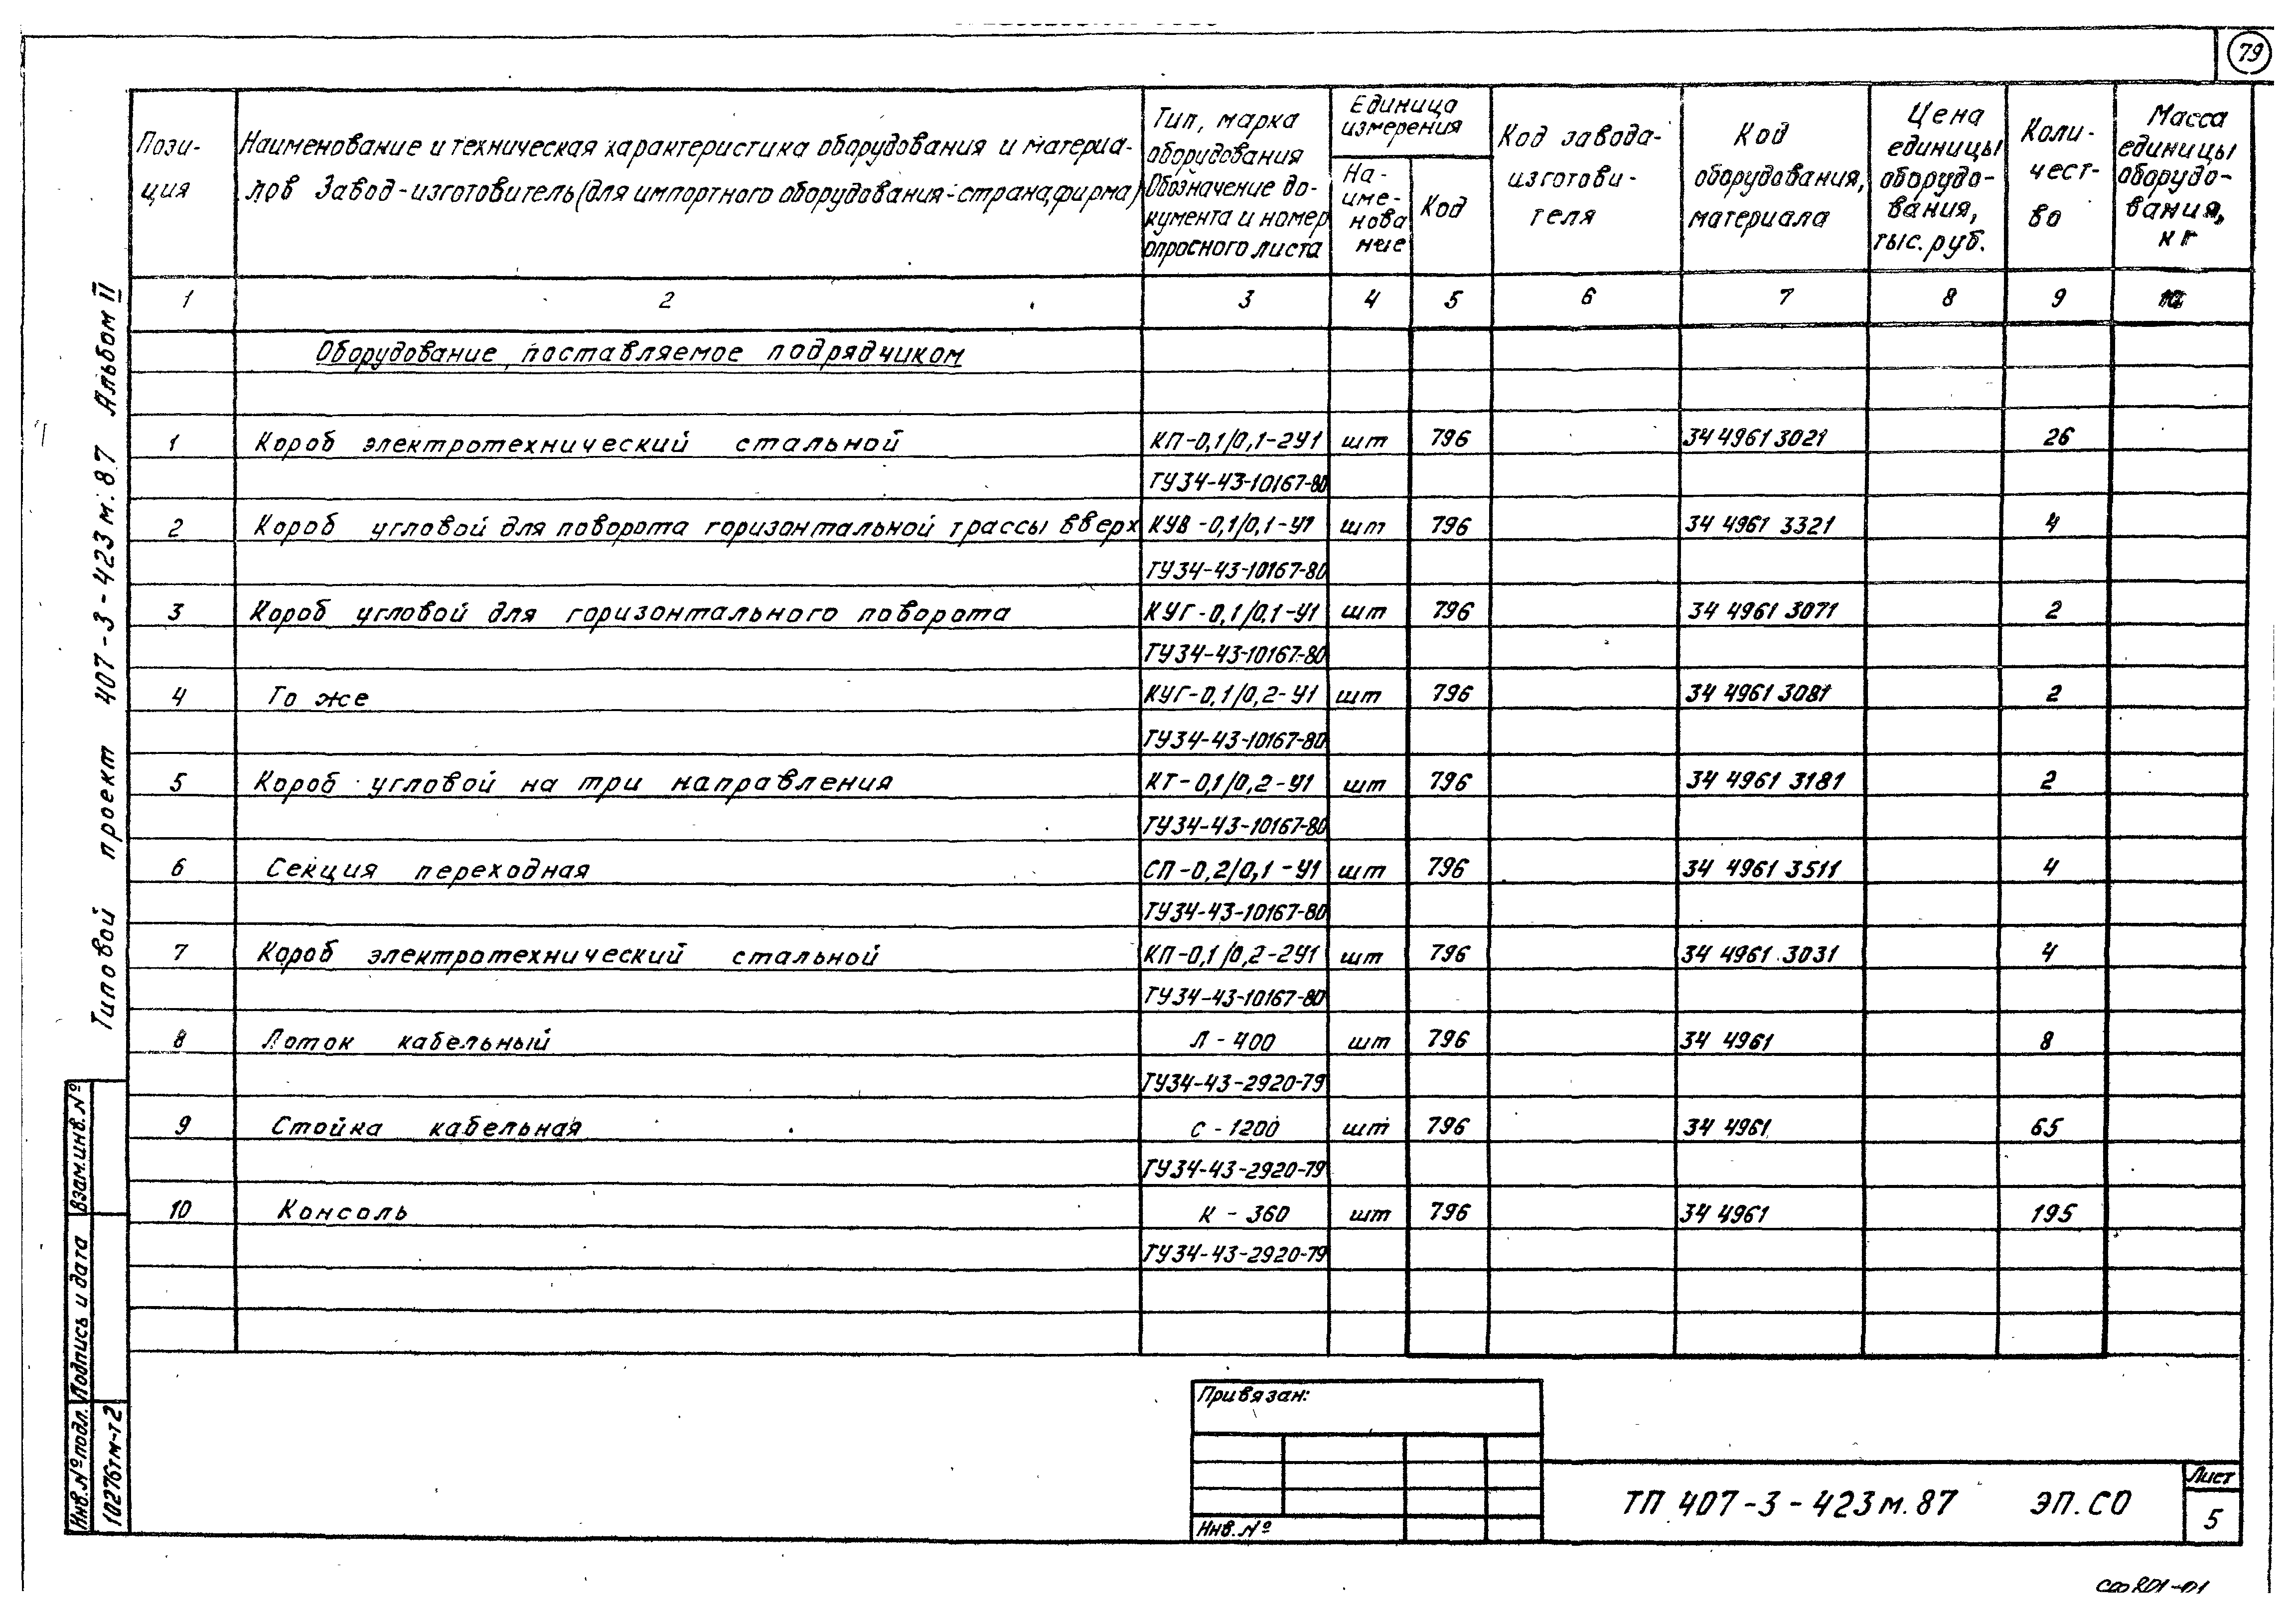 79
Пози-
ция
Наименование и техническая характеристика оборудования и материа-
лов Завод-изготовитель (для импортного оборудования-страна, фирма)
Тип, марка
оборудования
Обозначение до-
кумента и номер
опросного листа
Единица
измерения
На-
име-
нова
ние
Код
Код завода-
изготови-
теля
Код
оборудования,
материала
Цена
единицы
оборудо-
вания,
тыс. руб.
Коли-
чест-
во
Масса
единицы
оборудо-
вания,
кг
1 2 3 4 5 6 7 8 9 10
Оборудование, поставляемое подрядчиком
1 Короб электротехнический стальной КП-0,1/0,1-2У1 шт 796 34 4961 3021 26
ТУ34-43-10167-80
2 Короб угловой для поворота горизонтальной трассы вверх КУВ-0,1/0,1-У1 шт 796 34 4961 3321 4
ТУ34-43-10167-80
3 Короб угловой для горизонтального поворота КУГ-0,1/0,1-У1 шт 796 34 4961 3071 2
ТУ34-43-10167-80
4 То же КУГ-0,1/0,2-У1 шт 796 34 4961 3081 2
ТУ34-43-10167-80
5 Короб угловой на три направления КТ-0,1/0,2-У1 шт 796 34 4961 3181 2
ТУ34-43-10167-80
6 Секция переходная СП-0,2/0,1-У1 шт 796 34 4961 3511 4
ТУ34-43-10167-80
7 Короб электротехнический стальной КП-0,1/0,2-2У1 шт 796 34 4961 3031 4
ТУ34-43-10167-80
8 Лоток кабельный Л-400 шт 796 34 4961 8
ТУ34-43-2920-79
9 Стойка кабельная С-1200 шт 796 34 4961 65
ТУ34-43-2920-79
10 Консоль К-360 шт 796 34 4961 195
ТУ34-43-2920-79
Типовой проект 407-3-423м.87 Альбом II
Взам.инв.№
Подпись и дата
Инв.№ подл.
10276тм-т2
Привязан:
Инв.№
ТП 407-3-423м.87 ЭП.СО
Лист
5